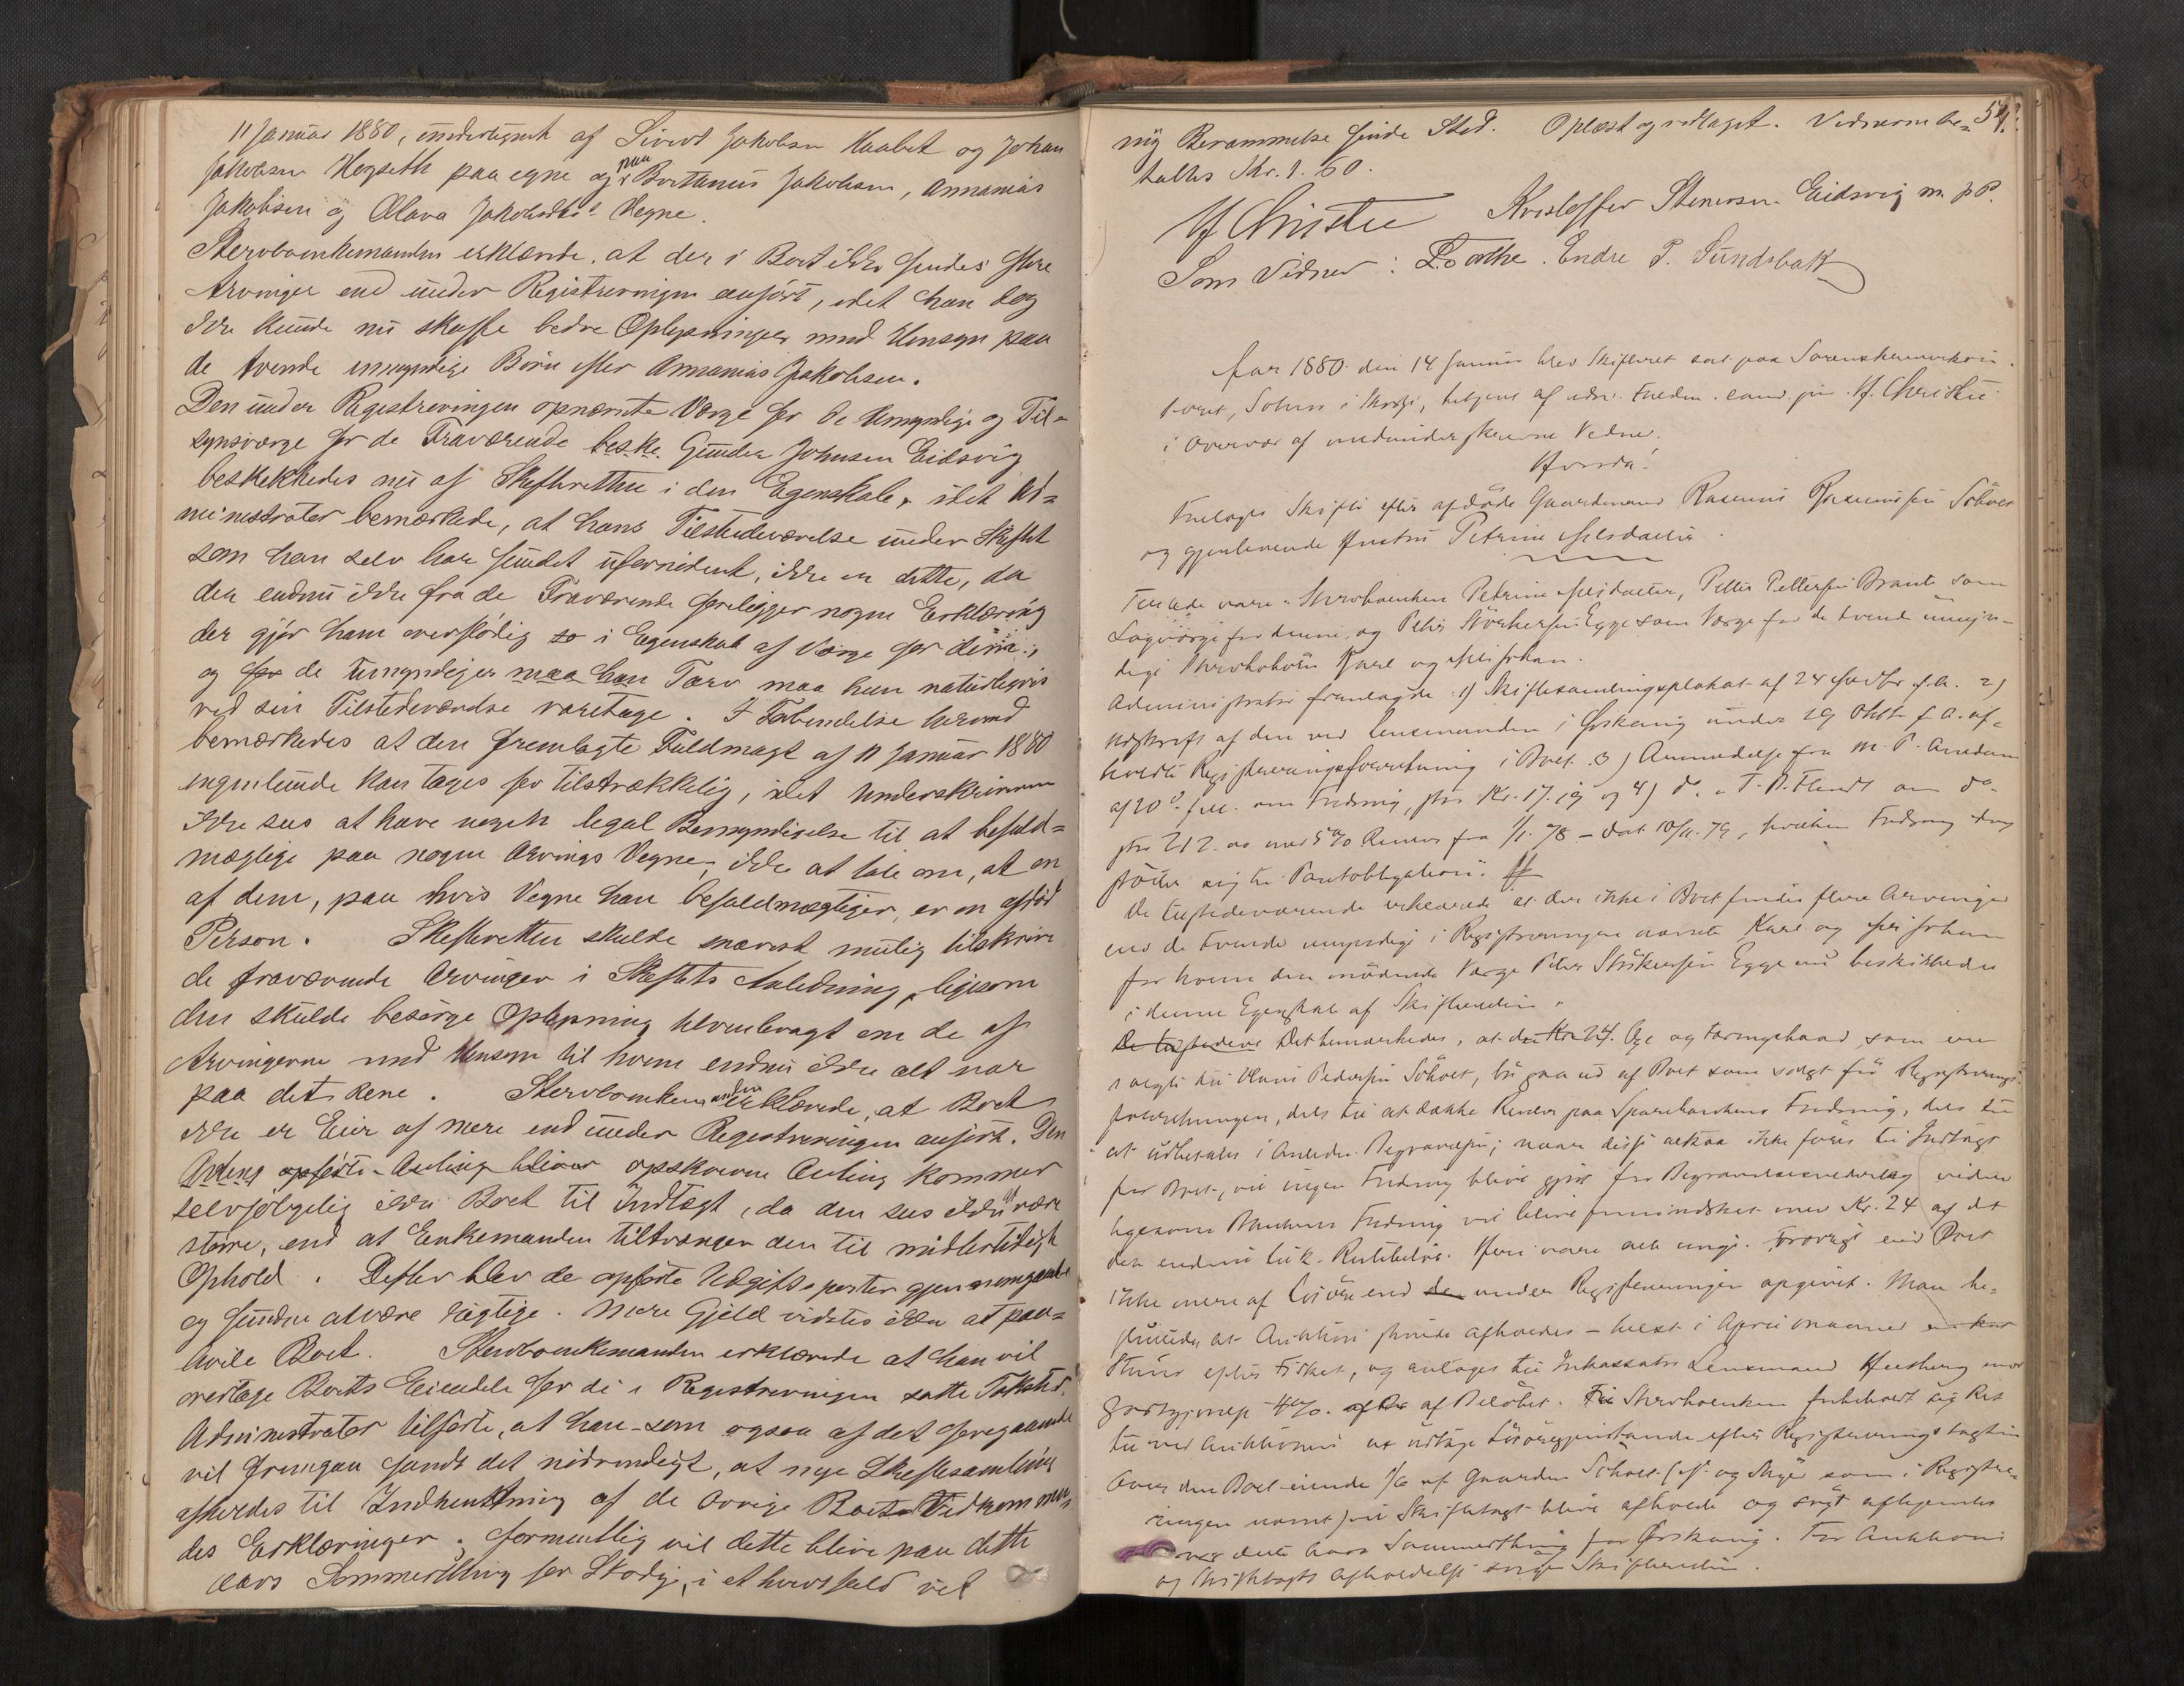 11 Januar 1880, underskrevet af Sivert Jakobsen Haabet og Johan
Jakobsen Hegseth paa egne og paa Bertanus Jakobsen, Annanias
Jakobsen og Olava Jakobsdtrs Vegne.
Stervboenkemanden erklærede, at der i Boet ikke findes flere
Arvinger end under Registreringen anført, idet han dog
ikke kunde nu skaffe bedre Oplysninger med Hensyn paa
de tvende umyndige Børn efter Annanias Jakobsen.
Den under Registreringen opnævnte Værge for de Umyndige og Til-
synsværge for de Fraværende beske. Gunder Johnsen Eidsvig
beskikkedes nu af Skifteretten i den Egenskab, idet Ad-
ministrator bemærkede, at hans Tilstedeværelse under Skiftet
som han selv har fundet ufornødent, ikke er dette, da
der endnu ikke fra de Fraværende foreligger nogen Erklæring
der gjør ham overflødig i Egenskab af Værge for disse,
og for de Umyndiges maa han Tarv maa han naturligvis
ved sin Tilstedeværelse varetage. I Forbindelse hermed
bemærkedes at den fremlagte Fuldmagt af 11 Januar 1880
ingenlunde kan tages for tilstrækkelig, idet Underskriverne
ikke sees at have nogen legal Bemyndigelse til at befuld-
mægtige paa nogen Arvings Vegne, ikke at tale om, at en
af dem, paa hvis Vegne han befuldmægtiger, er en afdød
Person. Skifteretten skulde snarest mulig tilskrive
de fraværende Arvinger i Skiftets Anledning, ligesom
den skulde besørge Oplysning tilveiebragt om de af
Arvingerne med Hensyn til hvem endnu ikke alt var
paa det Rene. Stervboenkemanden erklærede, at Boet
ikke er Eier af mere end under Registreringen anført. Den
Avling opførte Avling bliver opskrevne Avling kommer
selvfølgelig ikke Boet til Indtægt, da den sees ikke at være
større, end at Enkemanden tiltrænger den til midlertidigt
Ophold. Derefter blev de opførte Udgiftsposter gjennemgaaede
og fundne at være rigtige. Mere Gjeld vidstes ikke at paa-
hvile Boet. Stervboenkemanden erklærede at han vil
overtage Boets Eiendele for de i Registreringen satte Takster.
Administrator tilførte, at han som ogsaa af det foregaaende
vil fremgaa fandt det nødvendigt, at nye Skiftesamling
afholdes til Indhentning af de øvrige Boets Vedkommen-
des Erklæringer; formentlig vil dette blive paa dette
Aars Sommerthing for Skodje, i et hvert fald vil
54.
ny Berammelse finde Sted. Oplæst og vedtaget. Vidnerne be-
taltes Kr. 1.60.
Hf Christie Kristoffer Stenersen Eidsvig m. p. P.
Som Vidner: Endre P. Sundsbak
Aar 1880 den 14 Januar blev Skifteret sat paa Sorenskriverkon-
toret, Solnør i Skodje, betjent af edsv. Fuldm. cand. jur. Hf. Christie
i Overvær af medunderskrevne Vidner.
Hvorda!
Foretages Skifte efter afdøde Gaardmand Rasmus Rasmussen Søholt
og gjenlevende Hustru Petrine Nilsdatter.
Tilstede vare: Stervboenken Petrine Nilsdatter, Petter Pettersen Brante som
Lagværge for denne, og Peter Størkersen Egge som Værge for de tvende umyn-
dige Stervbobørn Karl og Nils Johan.
Administrator fremlagde 1) Skiftesamlingsplakat af 24 f. A. 2)
Udskrift af den ved Lensmanden i Ørskoug under 29 Oktbr f. A. af-
holdte Registreringsforretning i Boet. 3) Anmeldelse fra M. P. Amdam
af 20de om Fordring, stor Kr. 17.19 og 4) do. T. B. Flendt om do.
stor 212.00 med 5% Renter fra 1/1 78 - dat 10/11. 79, hvilken Fordring dog
støtter sig til Pantobligation.
De tilstedeværende erklærede at der ikke i Boet findes flere Arvinger
end de tvende umyndige i Registreringen nævnte Karl og Nils Johan
for hvem den mødende Værge Peter Størkersen Egge nu beskikkedes
i denne Egenskab af Skifteretten.
De tilstedevæ Det bemærkedes, at de Kr. 24. som er
solgt til Hans Pedersen Søholt, bør gaa ud af Boet som solgt før Registrerings-
forretningen, dels til at dække Renter paa Sparebankens Fordring, dels til
at udbetales i Anledn. Begravelsen; naar disse altsaa ikke føres til Indtægt
for Boet, vil ingen Fordring blive gjort for Begravelsesvederlag videre
ligesom Bankens Fordring vil blive formindsket med Kr. 24 af det
den endnu Forøvrigt eier Boet
ikke mere af Løsøre end de under Registreringen opgivet. Man be-
sluttede, at Auktion skulde afholdes - helst i April Maaned
strax efter Fisket, og antages til Inkassator Lensmand med
Godtgjørelse 4%. af Beløbet. Stervboenken forbeholdt sig Ret
til ved Auktionen at udtage Løsøregjenstande efter Registreringstaxten
Over den Boet eiende 1/6 af Gaarden Søholt som i Registre-
ringen nævnt vil Skiftetaxt blive afholdt og søgt afhjemlet
paa dette Aars Sommerthing for Ørskoug. For Auktions
og Skiftetaxts Afholdelse sørger Skifteretten.